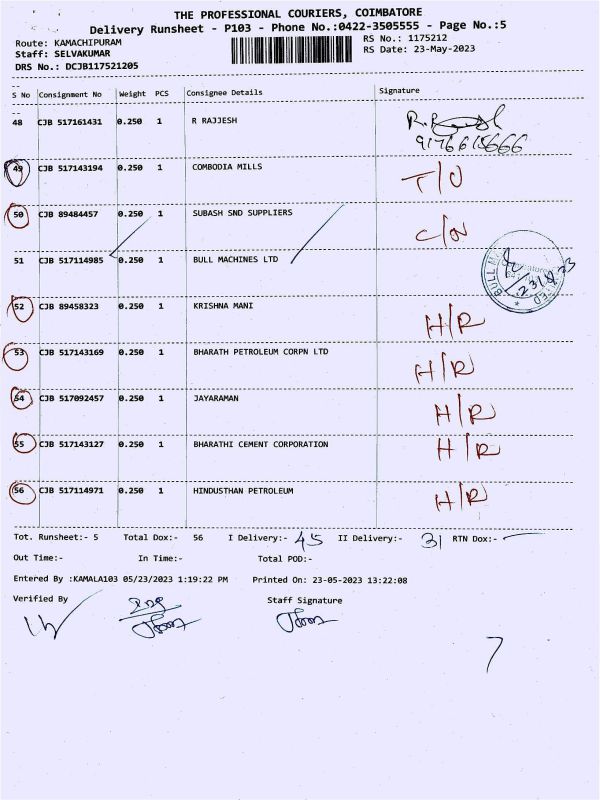 THE PROFESSIONAL COURIERS, COIMBATORE
Delivery Runsheet - P103 - Phone No.:0422-3505555 - Page No.:5
Route: KAMACHIPURAM RS No.: 1175212
Staff: SELVAKUMAR RS Date: 23-May-2023
DRS No.: DCJB117521205
S No Consignment No Weight PCS Consignee Details Signature
48 CJB 517161431 0.250 1 R RAJJESH
49 CJB 517143194 0.250 1 COMBODIA MILLS T/O
50 CJB 89484457 0.250 1 SUBASH SND SUPPLIERS C/N
51 CJB 517114985 0.250 1 BULL MACHINES LTD
52 CJB 89458323 0.250 1 KRISHNA MANI H/R
53 CJB 517143169 0.250 1 BHARATH PETROLEUM CORPN LTD H/R
54 CJB 517092457 1 JAYARAMAN H/R
55 CJB 517143127 0.250 1 BHARATHI CEMENT CORPORATION H/R
56 CJB 517114971 0.250 1 HINDUSTHAN PETROLEUM H/R
Tot. Runsheet:- 5 Total Dox:- 56 I Delivery:- 45 II Delivery:- 31 RTN Dox:-
Out Time:- In Time:- Total POD:-
Entered By :KAMALA103 05/23/2023 1:19:22 PM Printed On: 23-05-2023 13:22:08
Verified By Staff Signature
7